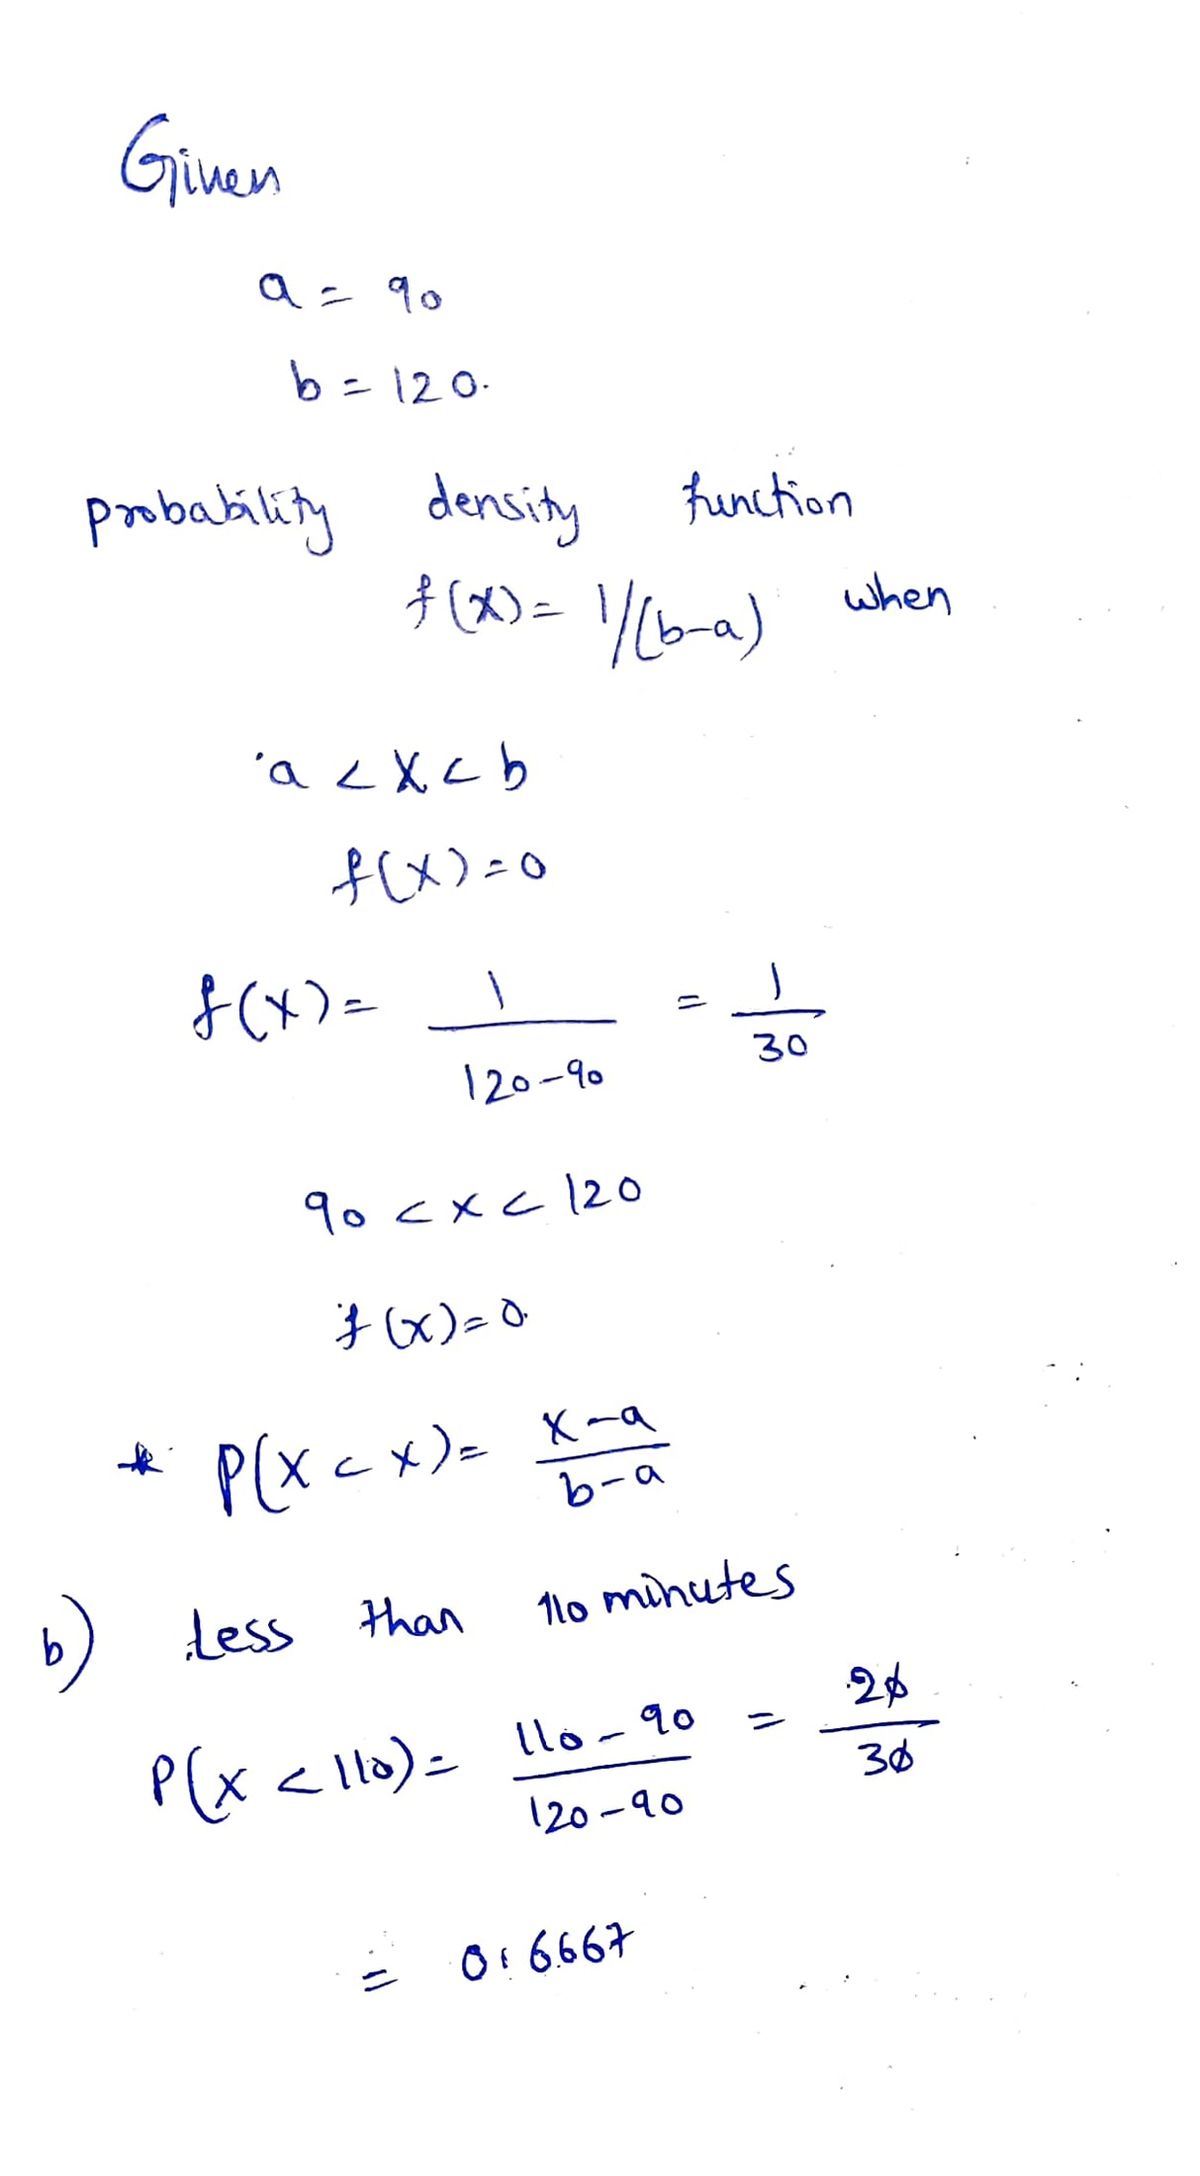 Given
a = 90
b = 120.
probability density function
f(x) = 1/(b-a) when
a < x < b
f(x) = 0
f(x) = 1/(120-90) = 1/30
90 < x < 120
f(x) = 0.
* P(X < x) = (x-a)/(b-a)
b) Less than 110 minutes
P(x < 110) = (110-90)/(120-90) = 20/30
= 0.6667